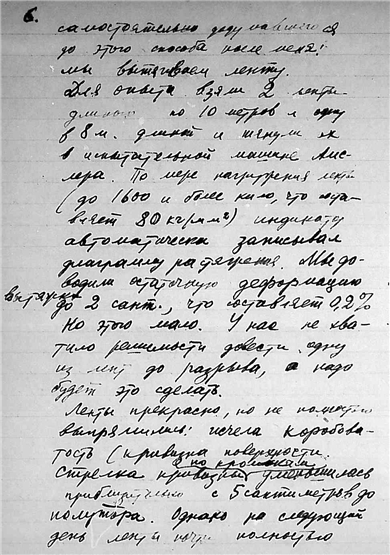 6.
самостоятельно додумавшегося
до этого способа после меня:
мы вытягиваем ленту.
Для опыта взяли 2 ленты
длиною по 10 метров и одну
в 8 м. длиной и тянули их
в испытательной машине Амс-
лера. По мере нагружения ленты
(до 1600 и более кило, что соста-
вляет 80 кг/мм²) индикатор
автоматически записывал
диаграмму растяжения. Мы до-
водили остаточную деформацию
вытяжки
до 2 сант., что составляет 0,2%
Но этого мало. У нас не хва-
тило решимости довести одну
из лент до разрыва, а надо
будет это сделать.
Ленты прекрасно, но не полностью
выпрямились: исчезла коробова-
тость (кривизна поверхности.
Стрелка кривизны по кромкам уменьшилась
приблизительно с 5 сантиметров до
полутора. Однако на следующий
день ленты почти полностью